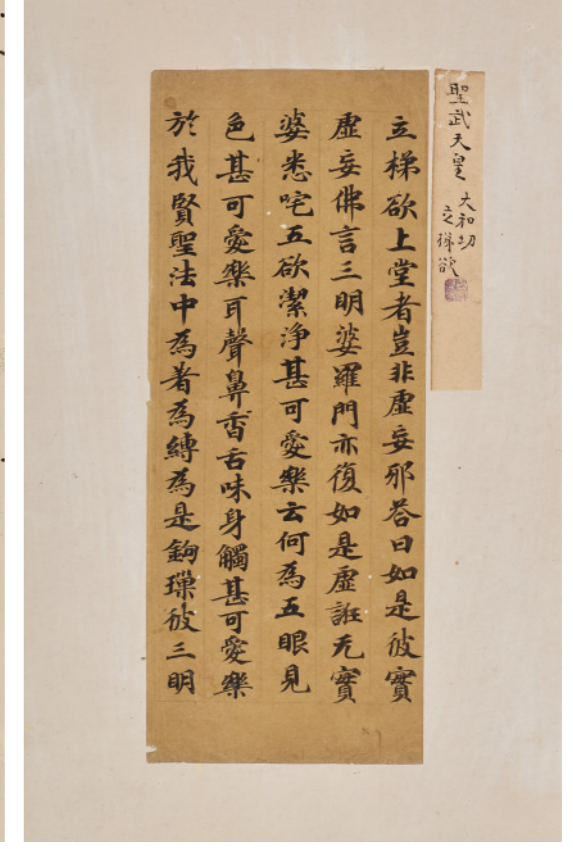 聖武天皇 大和切
立梯欲
立梯欲上堂者豈非虛妄耶答曰如是彼實
虛妄佛言三明婆羅門亦復如是虛誑无實
婆悉咤五欲潔淨甚可愛樂云何為五眼見
色甚可愛樂耳聲鼻香舌味身觸甚可愛樂
於我賢聖法中為著為縛為是鉤璅彼三明